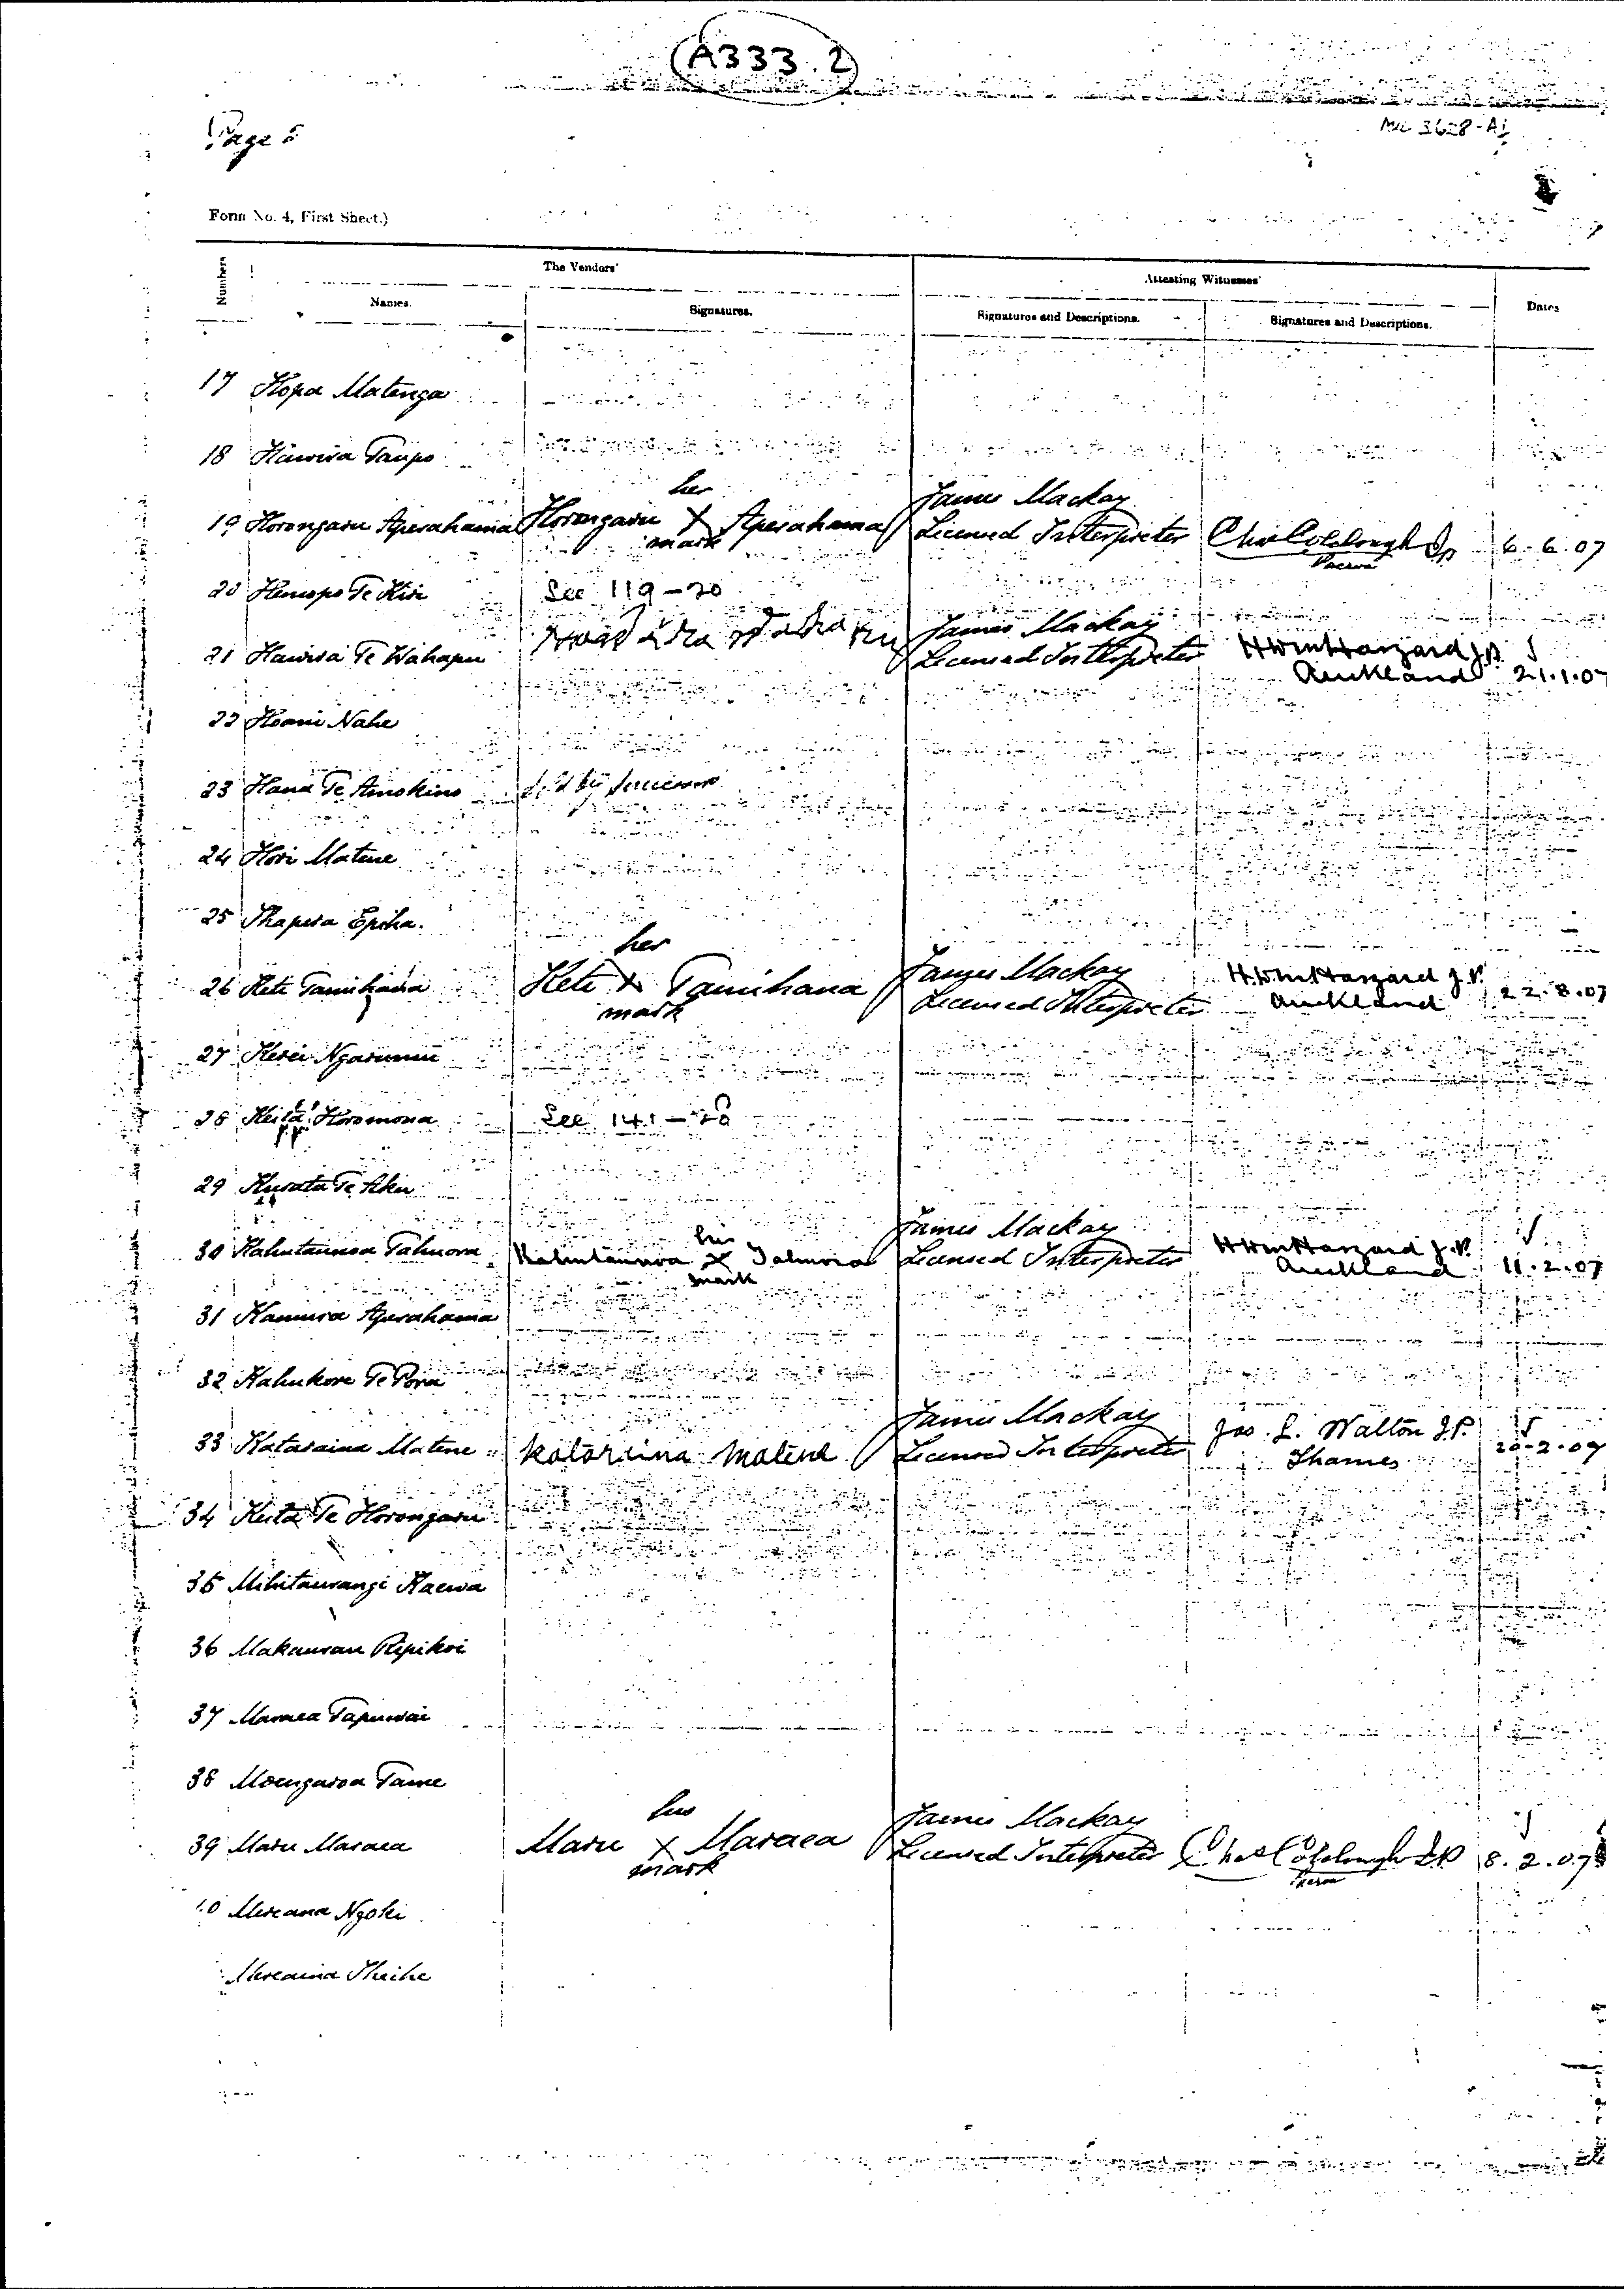 A333.2
Page 5
Auc 3628-A1
Form No. 4, First Sheet.)
Numbers
The Vendors'
Attesting Witnesses'
Dates
Names.
Signatures.
Signatures and Descriptions.
Signatures and Descriptions.
17 Hopa Matenga
18 Hawira Taupo
19 Horongaru Aperahama Horongaru her X mark Aperahama James Mackay
Licensed Interpreter Chas Colclough JP 6.6.07
Paeroa
20 See 119-20
21 Hawira Te Wahapu James Mackay
Licensed Interpreter Hazzard J.P.
Auckland 21.1.07
22 Hoani Nahe
23 Hana Te Amokino
24 Hori Matene
25 Ihapera Epiha.
26 Kete Tamihana Kete her X mark Tamihana James Mackay
Licensed Interpreter Hazzard J.P.
Auckland 22.8.07
27 Kerei
28 Horomona See 141-28
29 Kurata Te Aku
30 Kahutaunoa Tahuora Kahutaunoa his X mark Tahuora James Mackay
Licensed Interpreter Hazzard J.P.
Auckland 11.2.07
31 Kamura Aperahama
32 Kahukore Te Pora
33 Kataraina Matene Katarina Matene James Mackay
Licensed Interpreter Jas. L. Walton J.P.
Thames 20-2-07
34 Keita Te Horongaru
35 Mihitaurangi Kaewa
36 Makaurau Ripikoi
37 Maraea Tapuwai
38 Moengaroa Tame
39 Maru Maraea Maru his X mark Maraea James Mackay
Licensed Interpreter Chas Colclough J.P. 8.2.07
Paeroa
40 Mereana Ngohi
Mereaina Iheihe